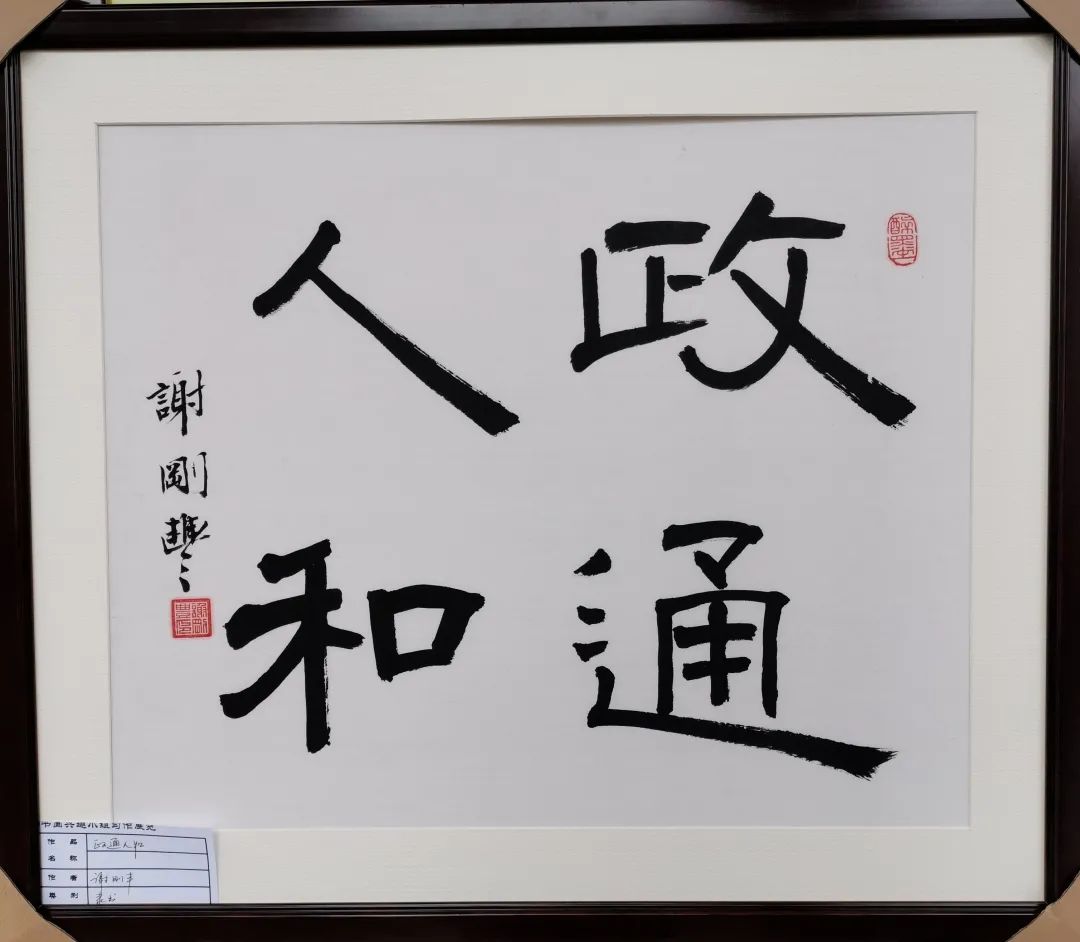 政通
人和
謝剛豐
书画兴趣小组习作展览
作品名称 政通人和
作者 谢刚丰
类别 隶书